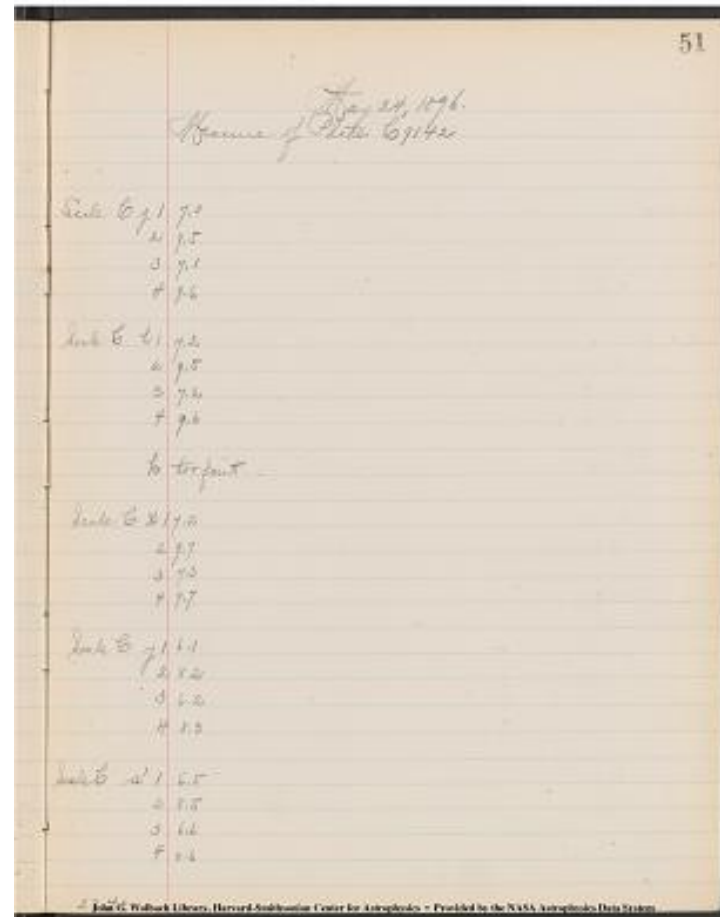 51
May 24, 1896.
Measure of Plate C9142
Scale C 1 7.2
2 9.5
3 7.1
4 9.6
Scale C 1 7.2
2 9.5
3 7.2
4 9.6
too faint
Scale C 1 7.2
2 9.7
3 7.3
4 9.7
Scale C 1 6.1
2 8.2
3 6.2
4 8.3
Scale C 1 6.5
2 8.5
3 6.6
4 8.6
John G. Wolbach Library, Harvard-Smithsonian Center for Astrophysics • Provided by the NASA Astrophysics Data System